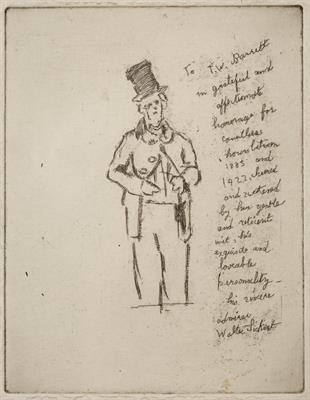 To T.W. Barrett
in grateful and
affectionate
homage for
countless
between
1885 and
1922, cheered
and restored
by his gentle
and reticent
wit, his
exquisite and
loveable
personality –
his sincere
admirer
Walter Sickert